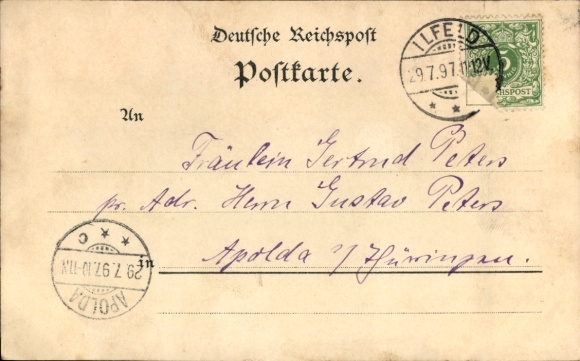 Deutsche Reichspost
Postkarte.
ILFELD
29.7.97.11-12V.
5
REICHSPOST
An
Fräulein Gertrud Peters
pr. Adr. Herrn Gustav Peters
in Apolda i/Thüringen.
APOLDA
29.7.97.10-11N
C